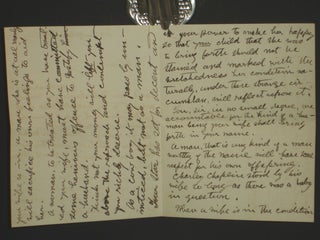 your wife is in, a man, who is at all manly
will sacrifice his own feelings to aid
her.
A woman, as treated as you have treat-
ed your wife, must have committed
some heinous offence to justify such
a charge.
Think not your money will lift you
above the reproach and contempt
you richly deserve.
As a cow boy it may pass by un-
noticed, but not as a man.
You, sir,
your power to make her happy,
so that your child that she was
to bring forth should not be
stained and marked with the
wretchedness her condition na-
turally, under these strange cir-
cumstances, will reflect upon it.
You, sir, in no small degree, are
accountable for the kind of a hu-
man being your wife shall bring
forth in your name.
A man, that is any kind of a man
worthy of the name, will have some
respect for his own offspring.
Charles Chaplin stood by his
wife so long as there was a baby
in question.
When a wife is in the condition